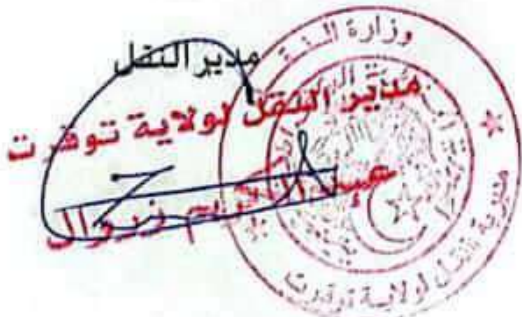 مدير النقل
مدير النقل لولاية توقرت
وزارة النقل
مديرية النقل لولاية توقرت